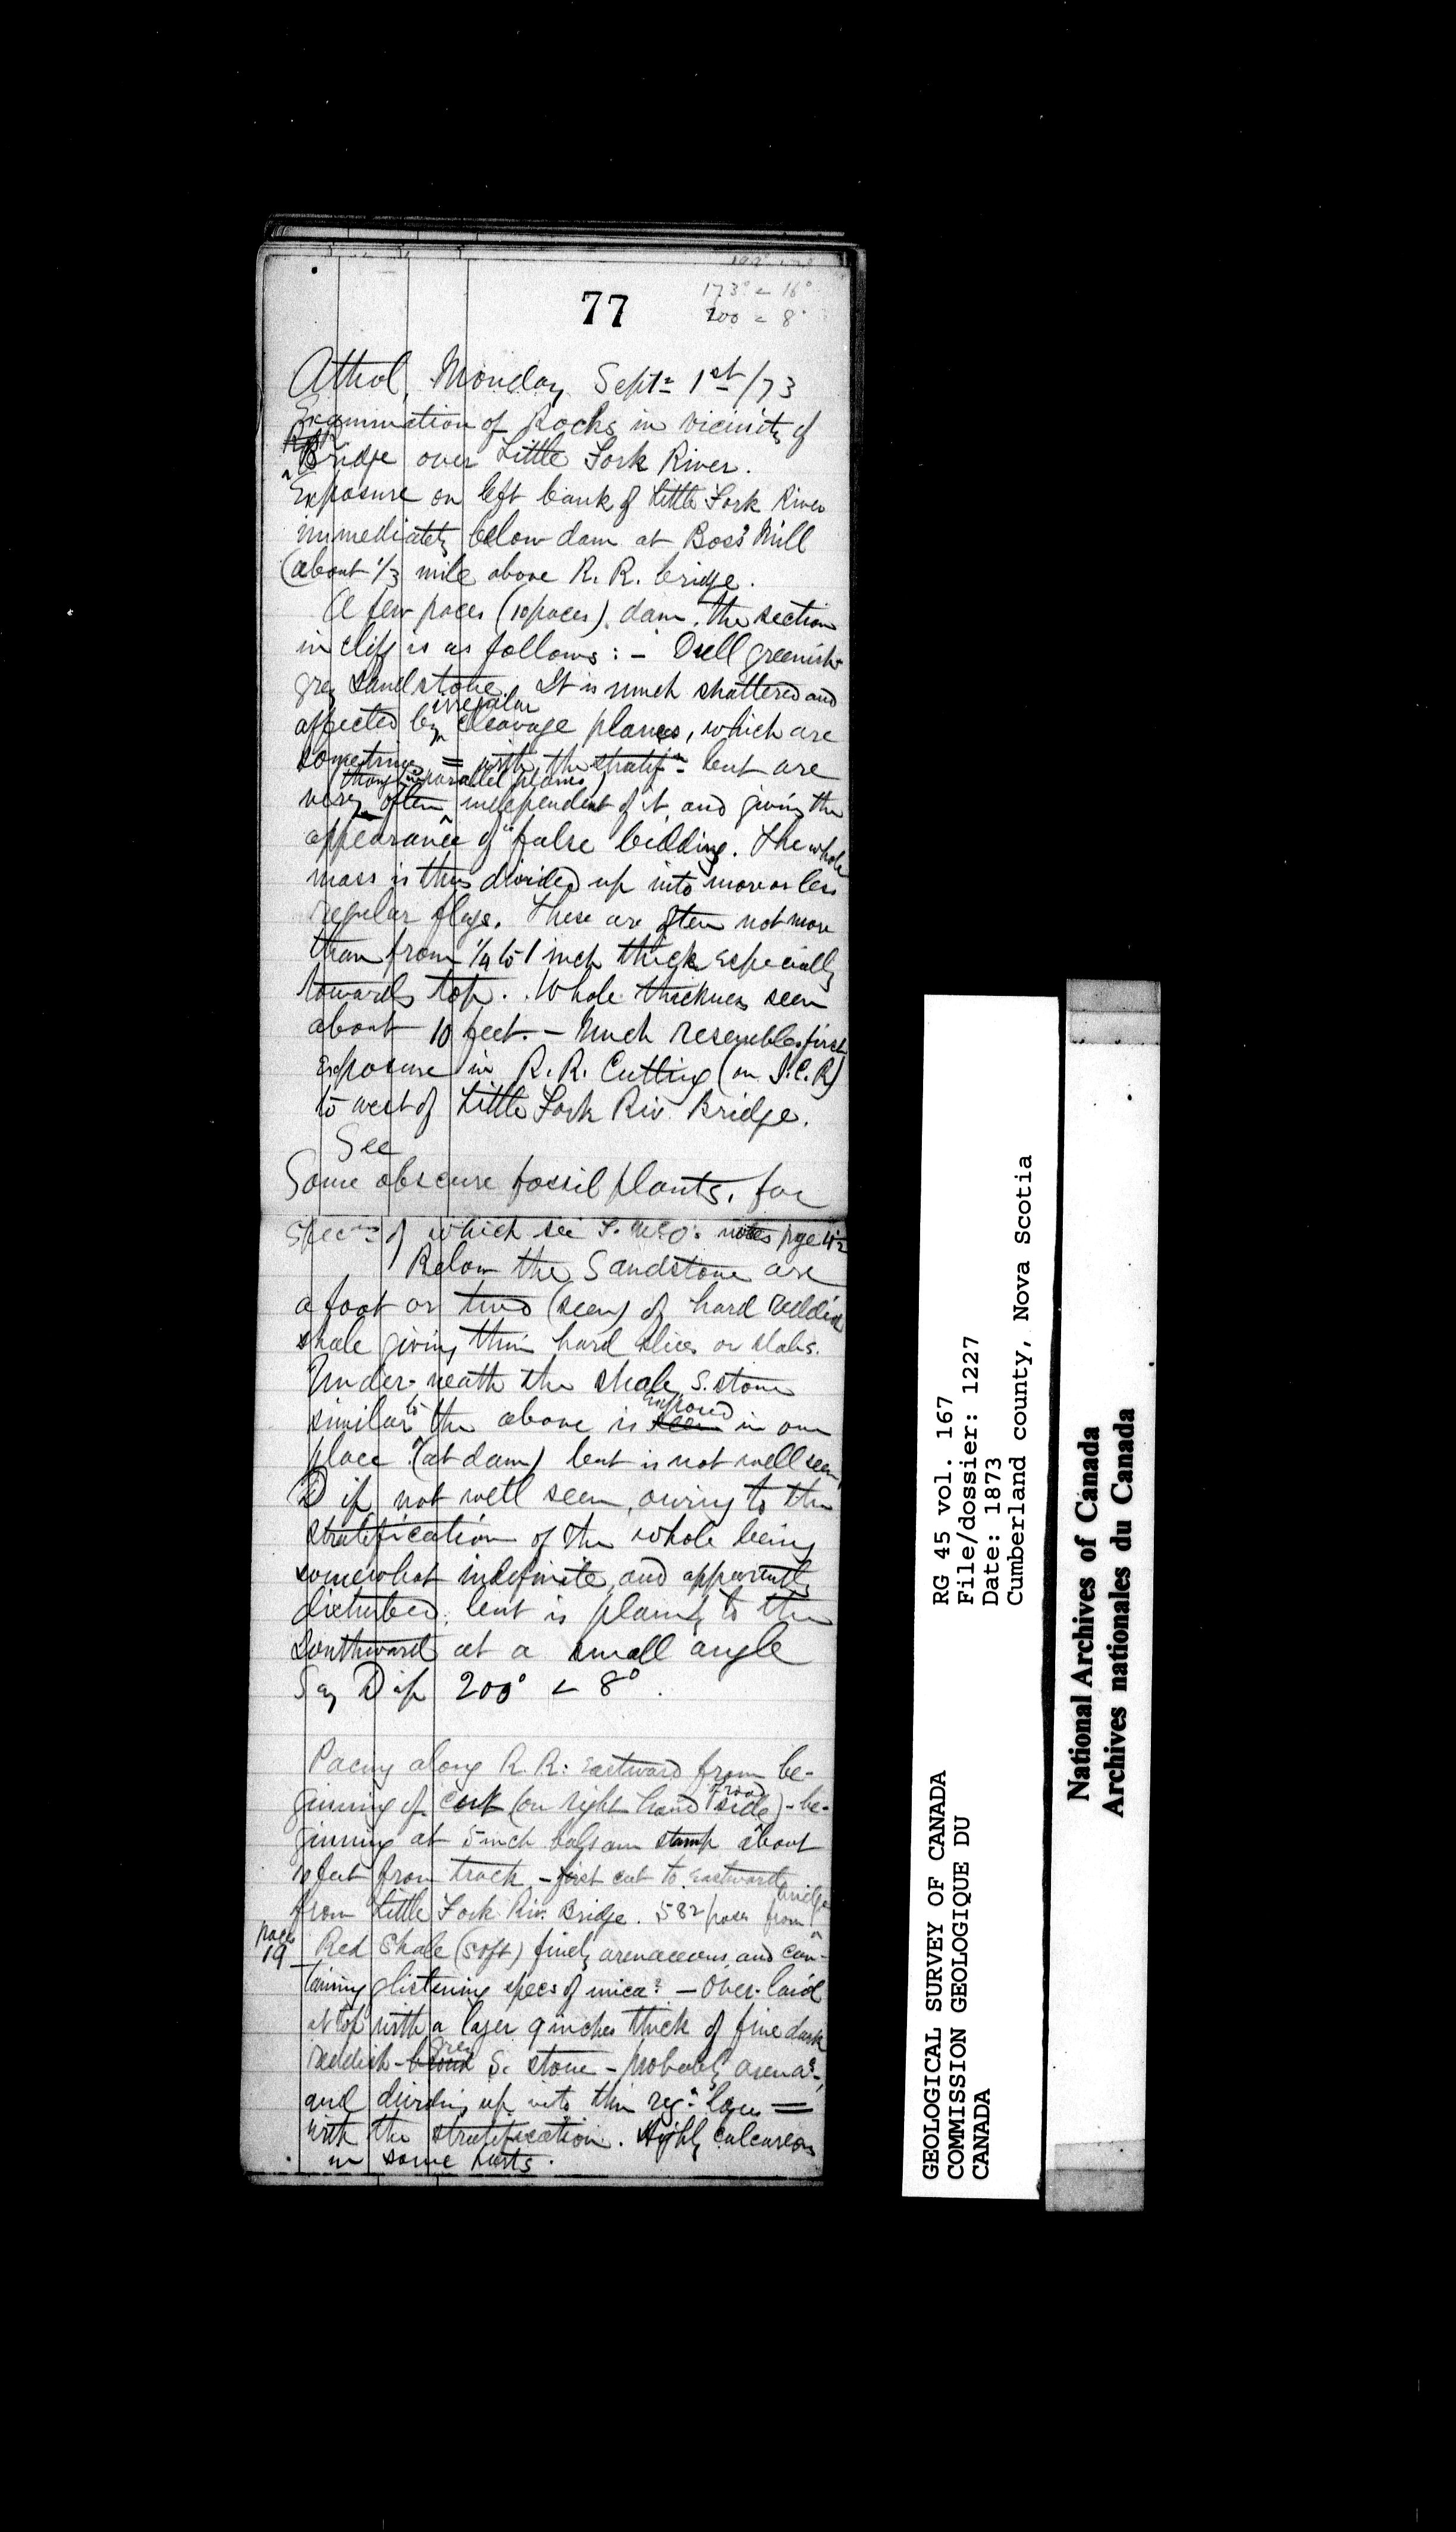 173° < 16°
200 < 8°
77
Athol, Monday Septr 1st/73
Examination of Rocks in vicinity of
R.R. Bridge over Little Fork River.
Exposure on left bank of Little Fork River
immediately below dam at Boss' Mill
(about 1/3 mile above R. R. bridge.
A few paces (10 paces) dam. the section
in cliff is as follows: – Dull greenish-
grey sandstone. It is much shattered and
affected by irregular cleavage planes, which are
sometimes = with the stratifn but are
very often (though in parallel planes) independent of it and giving the
appearance of "false bedding. The whole
mass is thus divided up into more or less
regular flags. These are often not more
than from 1/4 to 1 inch thick especially
towards top. Whole thickness seen
about 10 feet. – Much resembles first
exposure in R. R. Cutting (on I.C.R)
to west of Little Fork Riv. Bridge.
See
Some obscure fossil plants, for
specns of which see S. McO's notes page 42
Below the Sandstone are
a foot or two (seen) of hard reddish
shale giving thin hard slices or slabs.
Under-neath the shale, S. stone
similar to the above is seen exposed in one
place (at dam) but is not well seen,
Dip not well seen, owing to the
stratification of the whole being
somewhat indefinite, and apparently
disturbed, but is plainly to the
Southward at a small angle
Say Dip 200° < 8°.
Pacing along R. R. Eastward from be-
ginning of cut (on right hand side of road) – be-
ginning at 5 inch balsam stump about
10 feet from track – first cut to Eastward
from Little Fork Riv. Bridge. 582 paces from bridge
paces
19
Red Shale (soft) finely arenaceous, and con-
taining glistening specs of mica? – Over-laid
at top with a layer 9 inches thick of fine dark
reddish-brown grey S. stone – probably arena's,
and dividing up into thin reg.r layers =
with the stratification. Highly calcareous
in some parts.
GEOLOGICAL SURVEY OF CANADA
COMMISSION GEOLOGIQUE DU
CANADA
RG 45 vol. 167
File/dossier: 1227
Date: 1873
Cumberland county, Nova Scotia
National Archives of Canada
Archives nationales du Canada